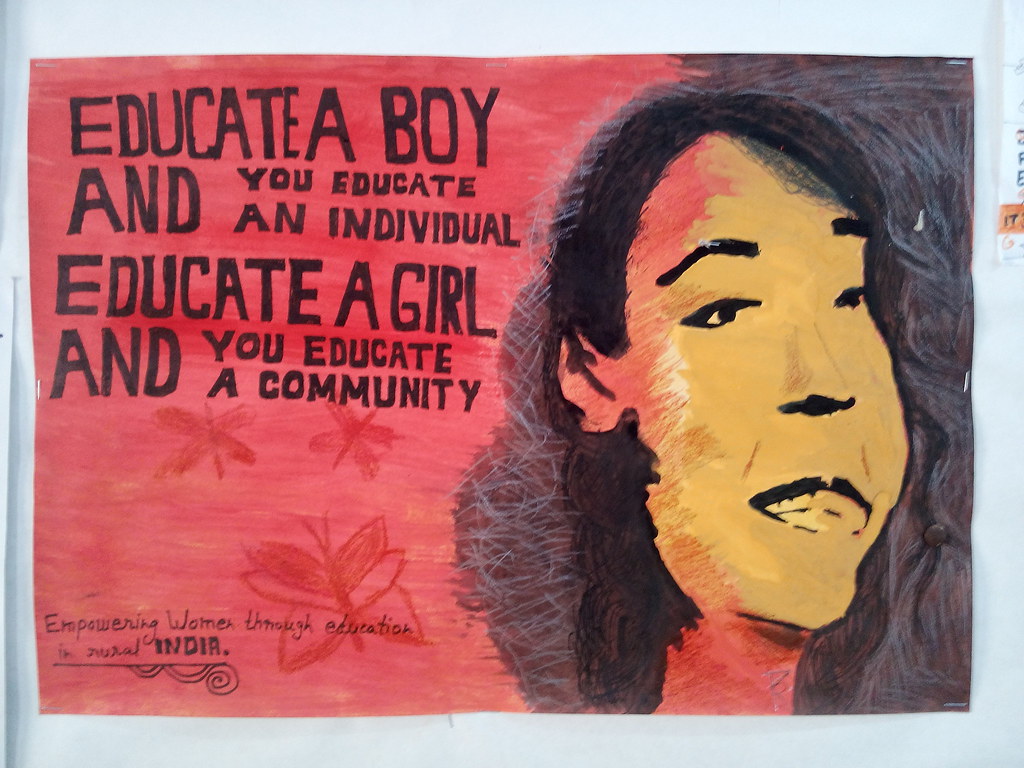 EDUCATE A BOY
AND YOU EDUCATE
AN INDIVIDUAL
EDUCATE A GIRL
AND YOU EDUCATE
A COMMUNITY
Empowering Women through education
in rural INDIA.